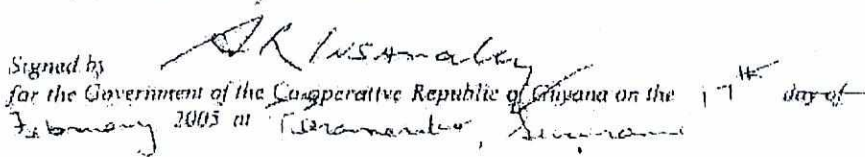 Signed by S R Insanally
for the Government of the Co-operative Republic of Guyana on the 17th day of
February 2005 at Paramaribo, Suriname